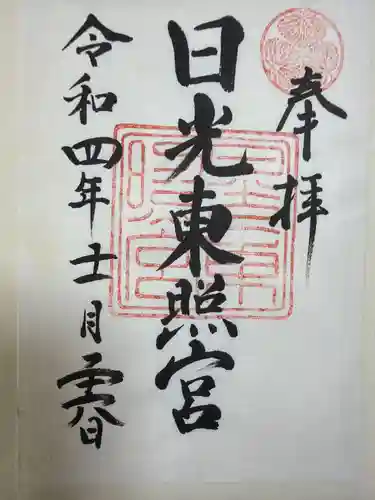 奉拝
日光東照宮
令和四年十一月日